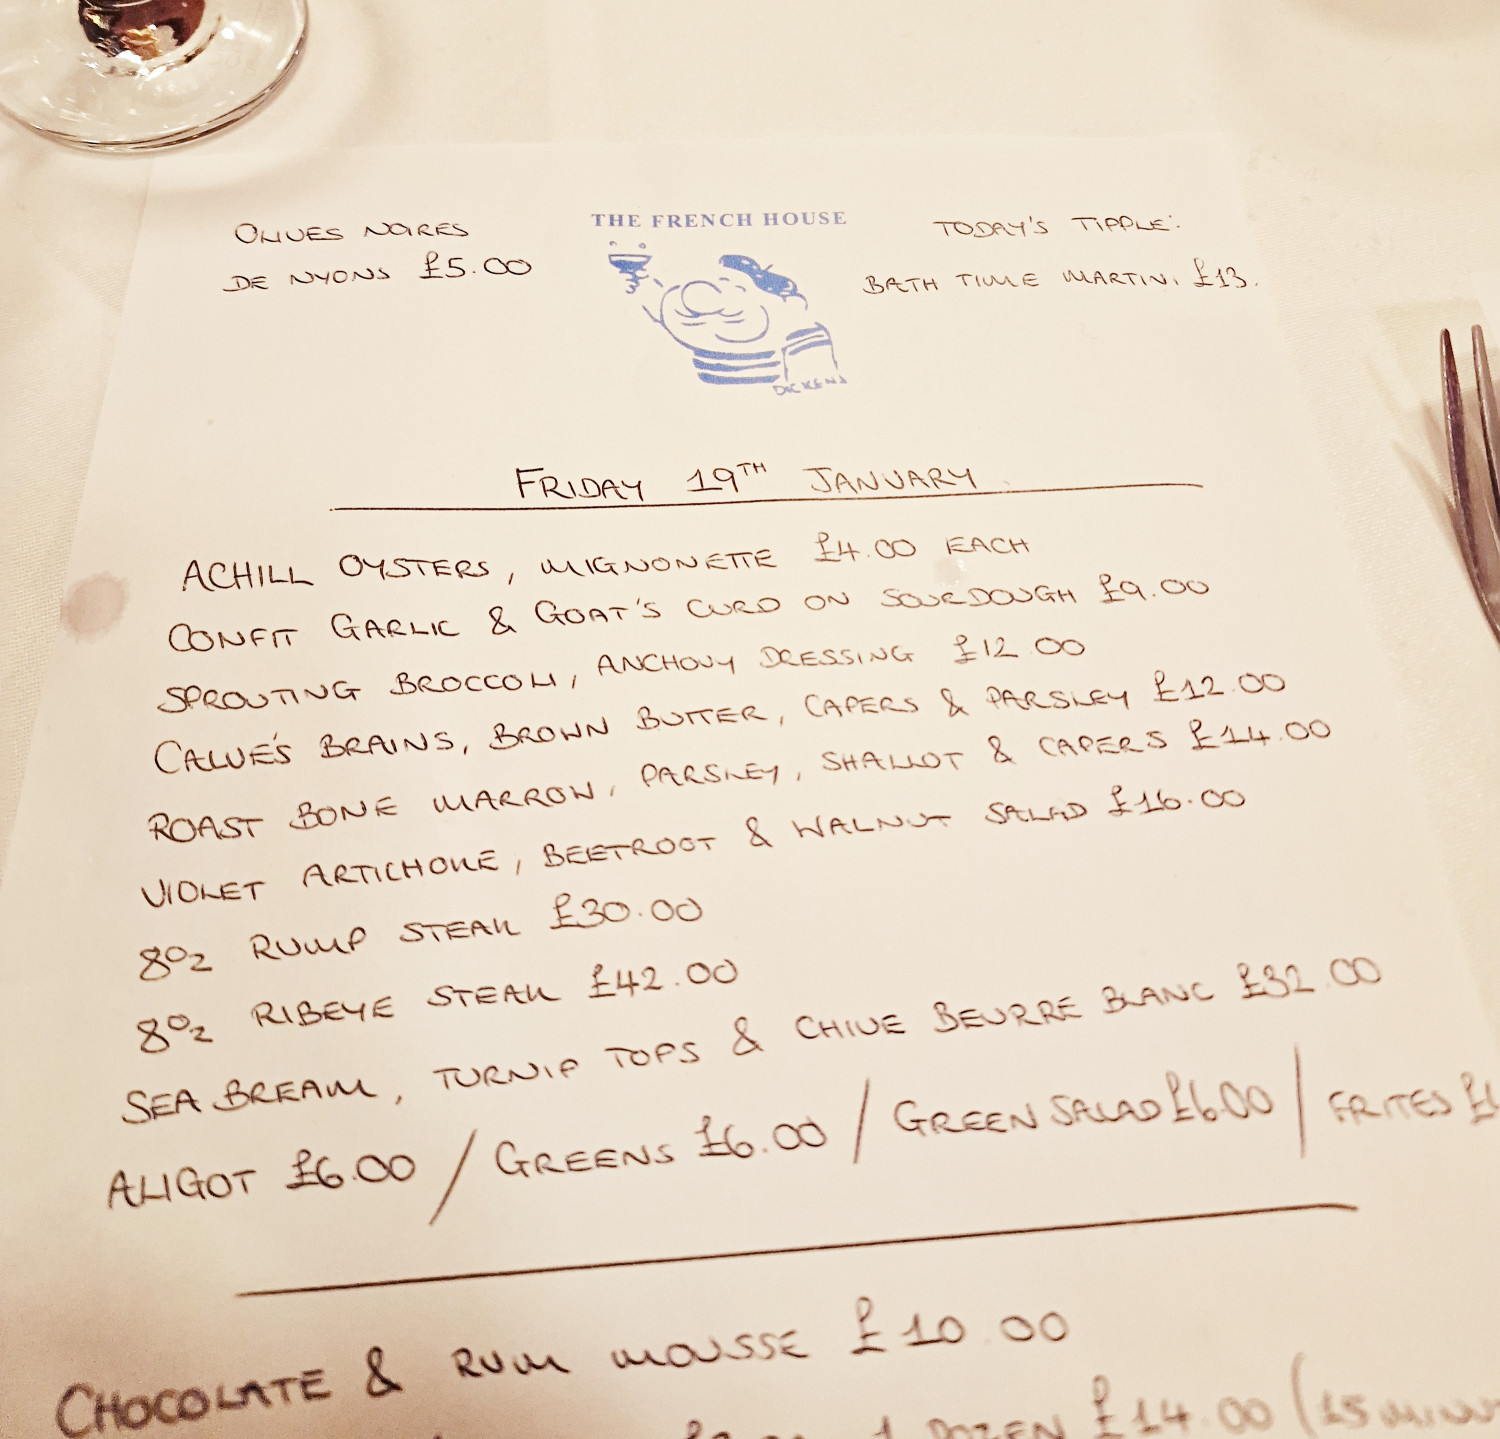 OLIVES NOIRES
DE NYONS £5.00
THE FRENCH HOUSE
DICKENS
TODAY'S TIPPLE:
BATH TIME MARTINI £13.
FRIDAY 19TH JANUARY
ACHILL OYSTERS, MIGNONETTE £4.00 EACH
CONFIT GARLIC & GOAT'S CURD ON SOURDOUGH £9.00
SPROUTING BROCCOLI, ANCHOVY DRESSING £12.00
CALVE'S BRAINS, BROWN BUTTER, CAPERS & PARSLEY £12.00
ROAST BONE MARROW, PARSLEY, SHALLOT & CAPERS £14.00
VIOLET ARTICHOKE, BEETROOT & WALNUT SALAD £16.00
8oz RUMP STEAK £30.00
8oz RIBEYE STEAK £42.00
SEA BREAM, TURNIP TOPS & CHIVE BEURRE BLANC £32.00
ALIGOT £6.00 / GREENS £6.00 / GREEN SALAD £6.00 / FRITES
CHOCOLATE & RUM MOUSSE £10.00
DOZEN £14.00 (15